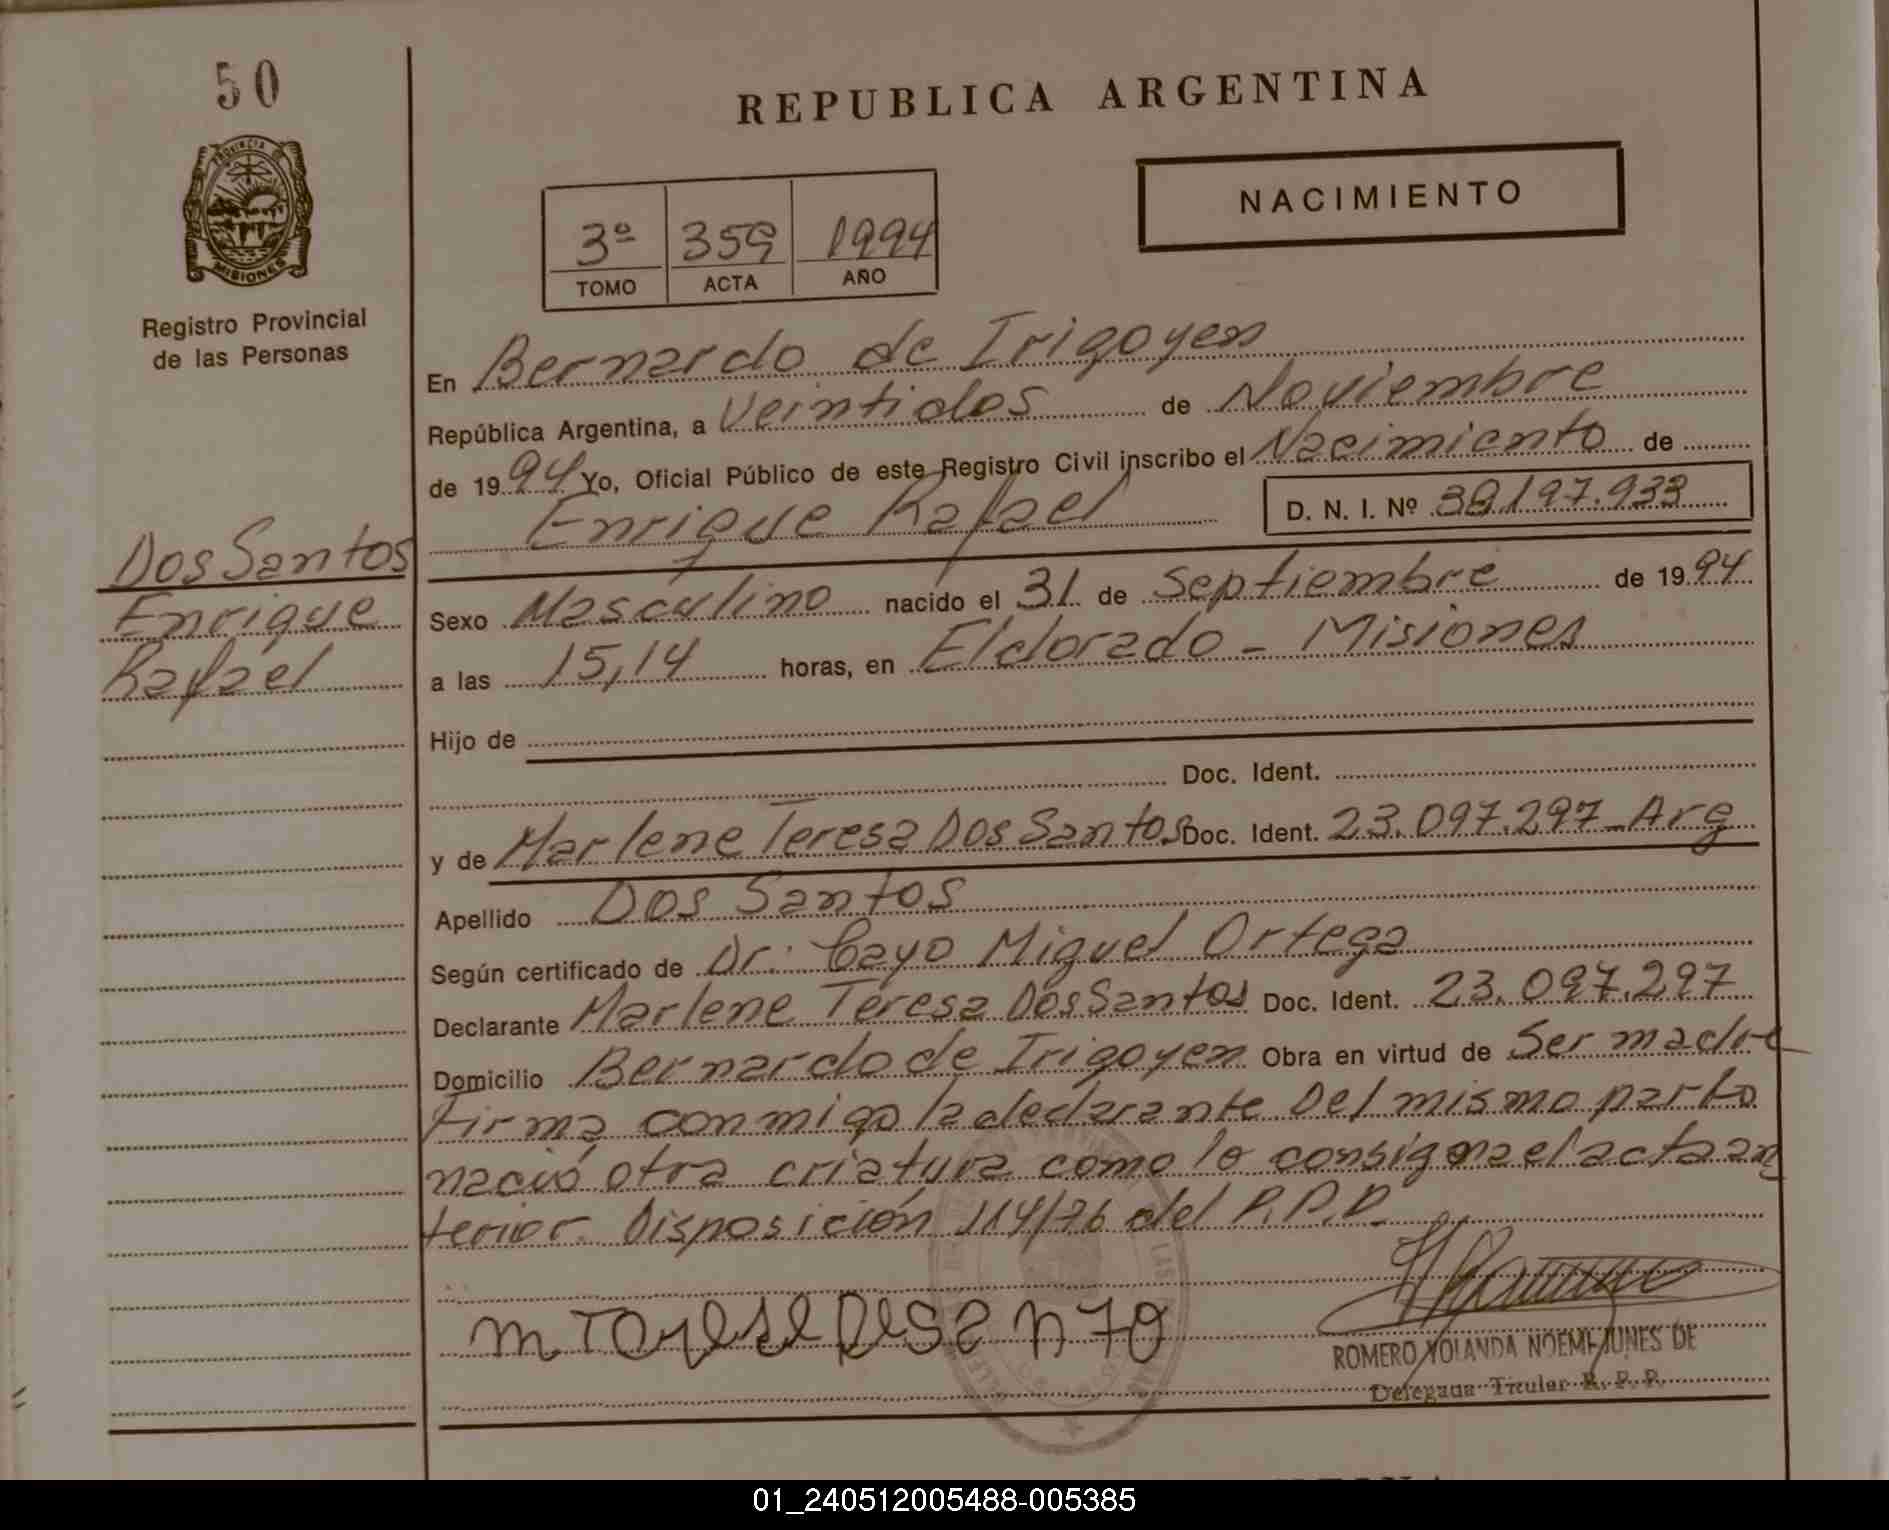 50
REPUBLICA ARGENTINA
PROVINCIA DE
MISIONES
NACIMIENTO
3º 359 1994
TOMO ACTA AÑO
Registro Provincial
de las Personas
En Bernardo de Irigoyen
República Argentina, a Veintidos de Noviembre
de 1994 Yo, Oficial Público de este Registro Civil inscribo el Nacimiento de
Enrique Rafael D. N. I. Nº 38.197.933
Dos Santos
Enrique
Rafael
Sexo Masculino nacido el 31 de Septiembre de 1994
a las 15,14 horas, en Eldorado - Misiones
Hijo de
Doc. Ident.
y de Marlene Teresa Dos Santos Doc. Ident. 23.097.297 - Arg
Apellido Dos Santos
Según certificado de Dr. Cayo Miguel Ortega
Declarante Marlene Teresa Dos Santos Doc. Ident. 23.097.297
Domicilio Bernardo de Irigoyen Obra en virtud de Ser madre
Firma conmigo la declarante Del mismo parto
nació otra criatura como lo consigna el acta an
terior. Disposición 114/76 del R.P.P.
m Torese Desanto
ROMERO YOLANDA NOEMI JUNES DE
Delegada Titular R. P. P.
01_240512005488-005385